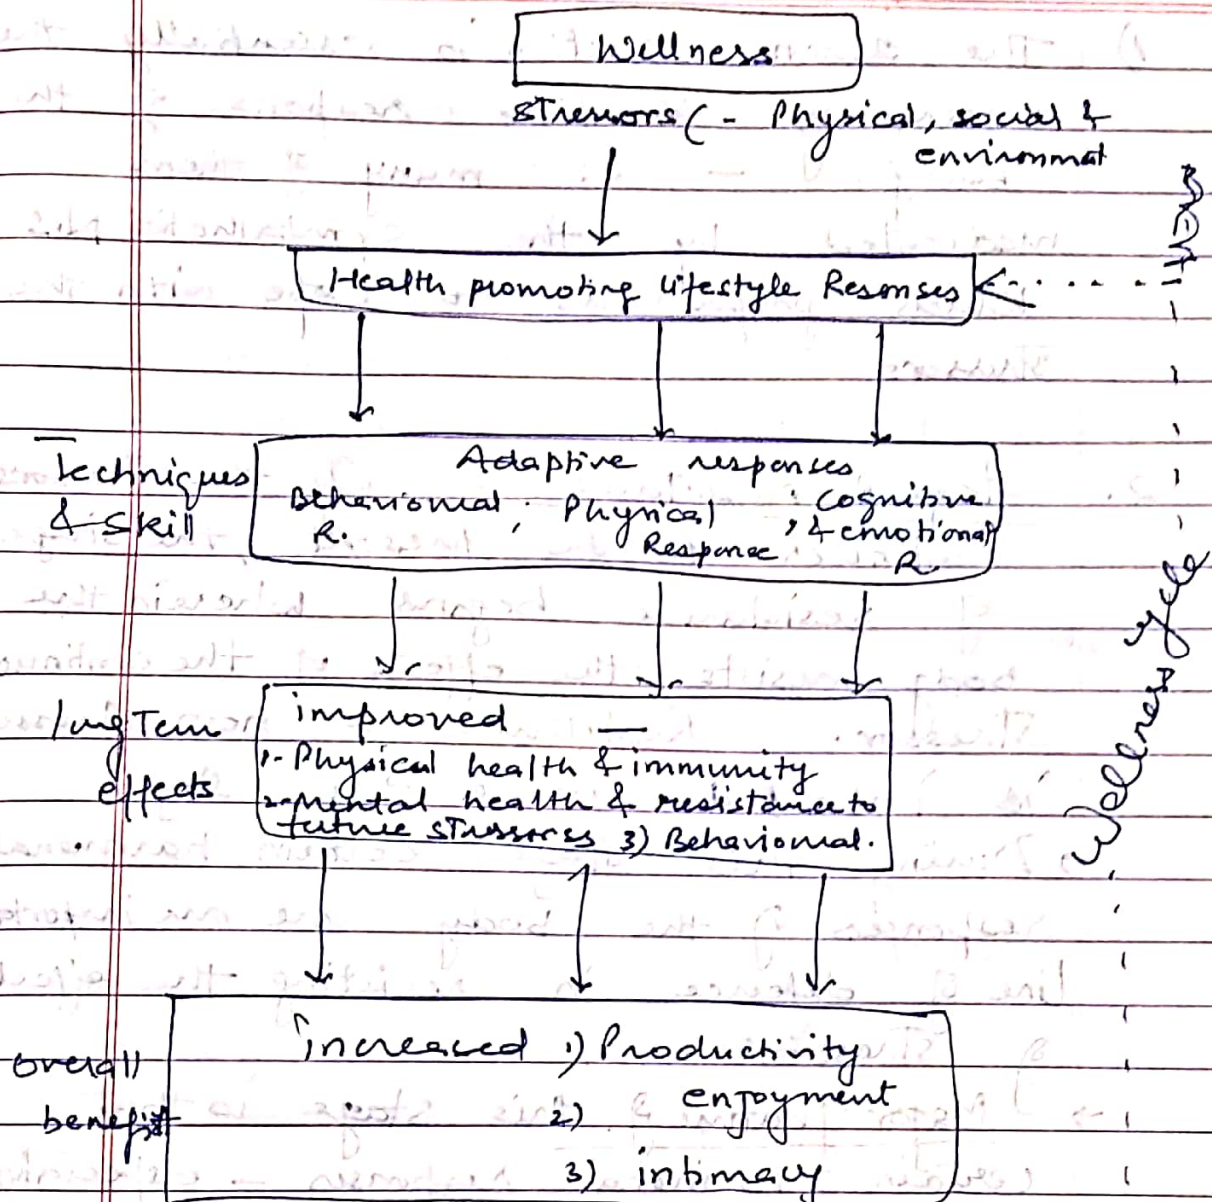 Wellness
Stressors (- Physical, social &
environmat
Health promoting lifestyle Resonses
Techniques
& skill
Adaptive responses
Behaviomal R. ; Physical Response , cognitive & emotional R.
long Tem
effects
improved
1.- Physical health & immunity
2.- mental health & resistance to
future stressorss 3) Behaviomal.
overall
benefit
increased 1) Productivity
2) enjoyment
3) intimacy
Wellness cycle